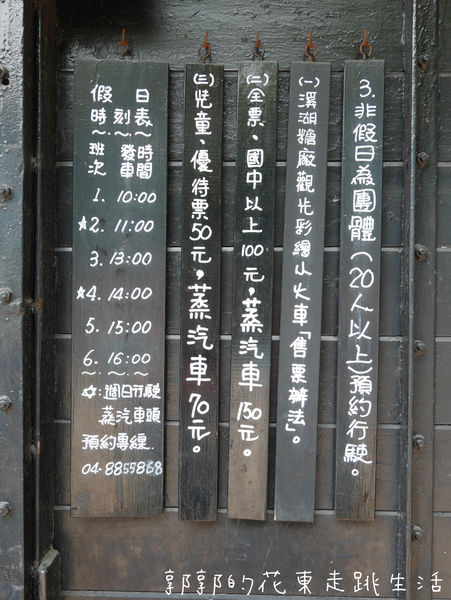 3. 非假日為團體(20人以上)預約行駛。
(一)溪湖糖廠觀光彩繪小火車「售票辦法」。
(二)全票、國中以上100元，蒸汽車150元。
(三)児童、優待票50元，蒸汽車70元。
假日
時刻表
班次 發車時間
1. 10:00
☆2. 11:00
3. 13:00
☆4. 14:00
5. 15:00
6. 16:00
☆:週日行駛
蒸汽車頭
預約專線
04-8855868
郭郭的花東走跳生活